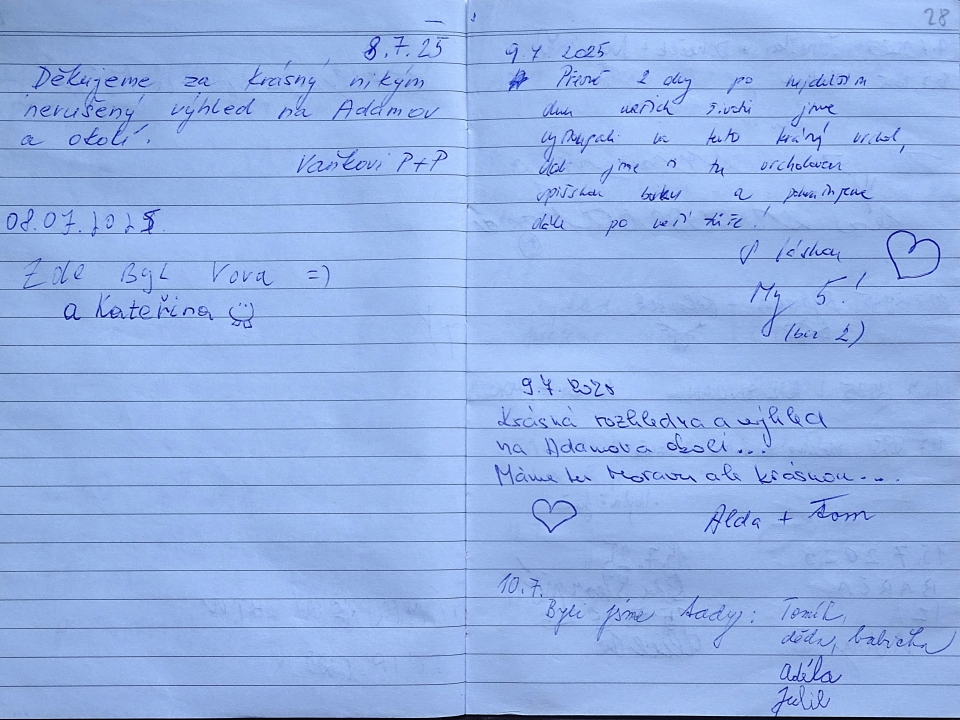 8.7.25
Děkujeme za krásný nikým
nerušený výhled na Adamov
a okolí.
Vaňkovi P+P
08.07.2025
Zde Byl Vova =)
a Kateřina
28
9.7.2025
Přesně 2 dny po nejdelším
dnu našich životů jsme
vystoupali na tuto krásný vrchol,
dali jsme si tu vrcholovou
a pokračujeme
dále po naší túře!
S láskou
My 5!
(bez 2)
9.7.2025
Krásná rozhledna a výhled
na Adamov a okolí...
Máme tu Moravu ale krásnou....
Alda + Tom
10.7.
Byli jsme tady: Tomík,
děda, babička
Adéla
Julie